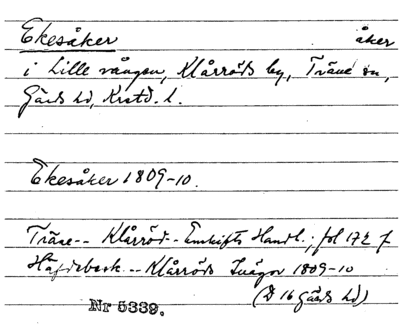 Ekesåker åker
i Lille vången, Klårröds by, Träne sn,
Gärds hd, Krstd. l.
Ekesåker 1809-10.
Träne-- Klårröd-- Enskifts Handl.; fol 172 f
Häfdebeck--Klårröds Inägor 1809-10
(D 16 Gärds hd)
Nr 5339.